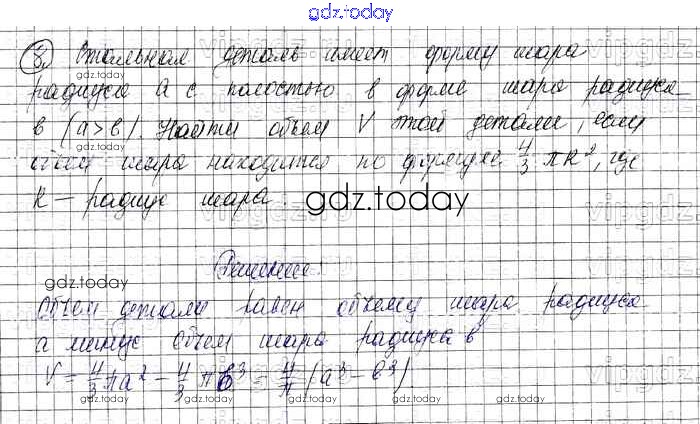 gdz.today
8. Стальная деталь имеет форму шара
радиуса а с полостью в форме шара радиуса
в (a>в). Найти объем V этой детали, если
объем шара находится по формуле 4/3 πR³, где
R – радиус шара.
gdz.today
Решение.
Объем детали равен объему шара радиуса
а минус объем шара радиуса в
V = 4/3 πa² – 4/3 πв³ = 4/π (a³ – в³)
gdz.today
gdz.today
gdz.today
gdz.today
gdz.today
gdz.today